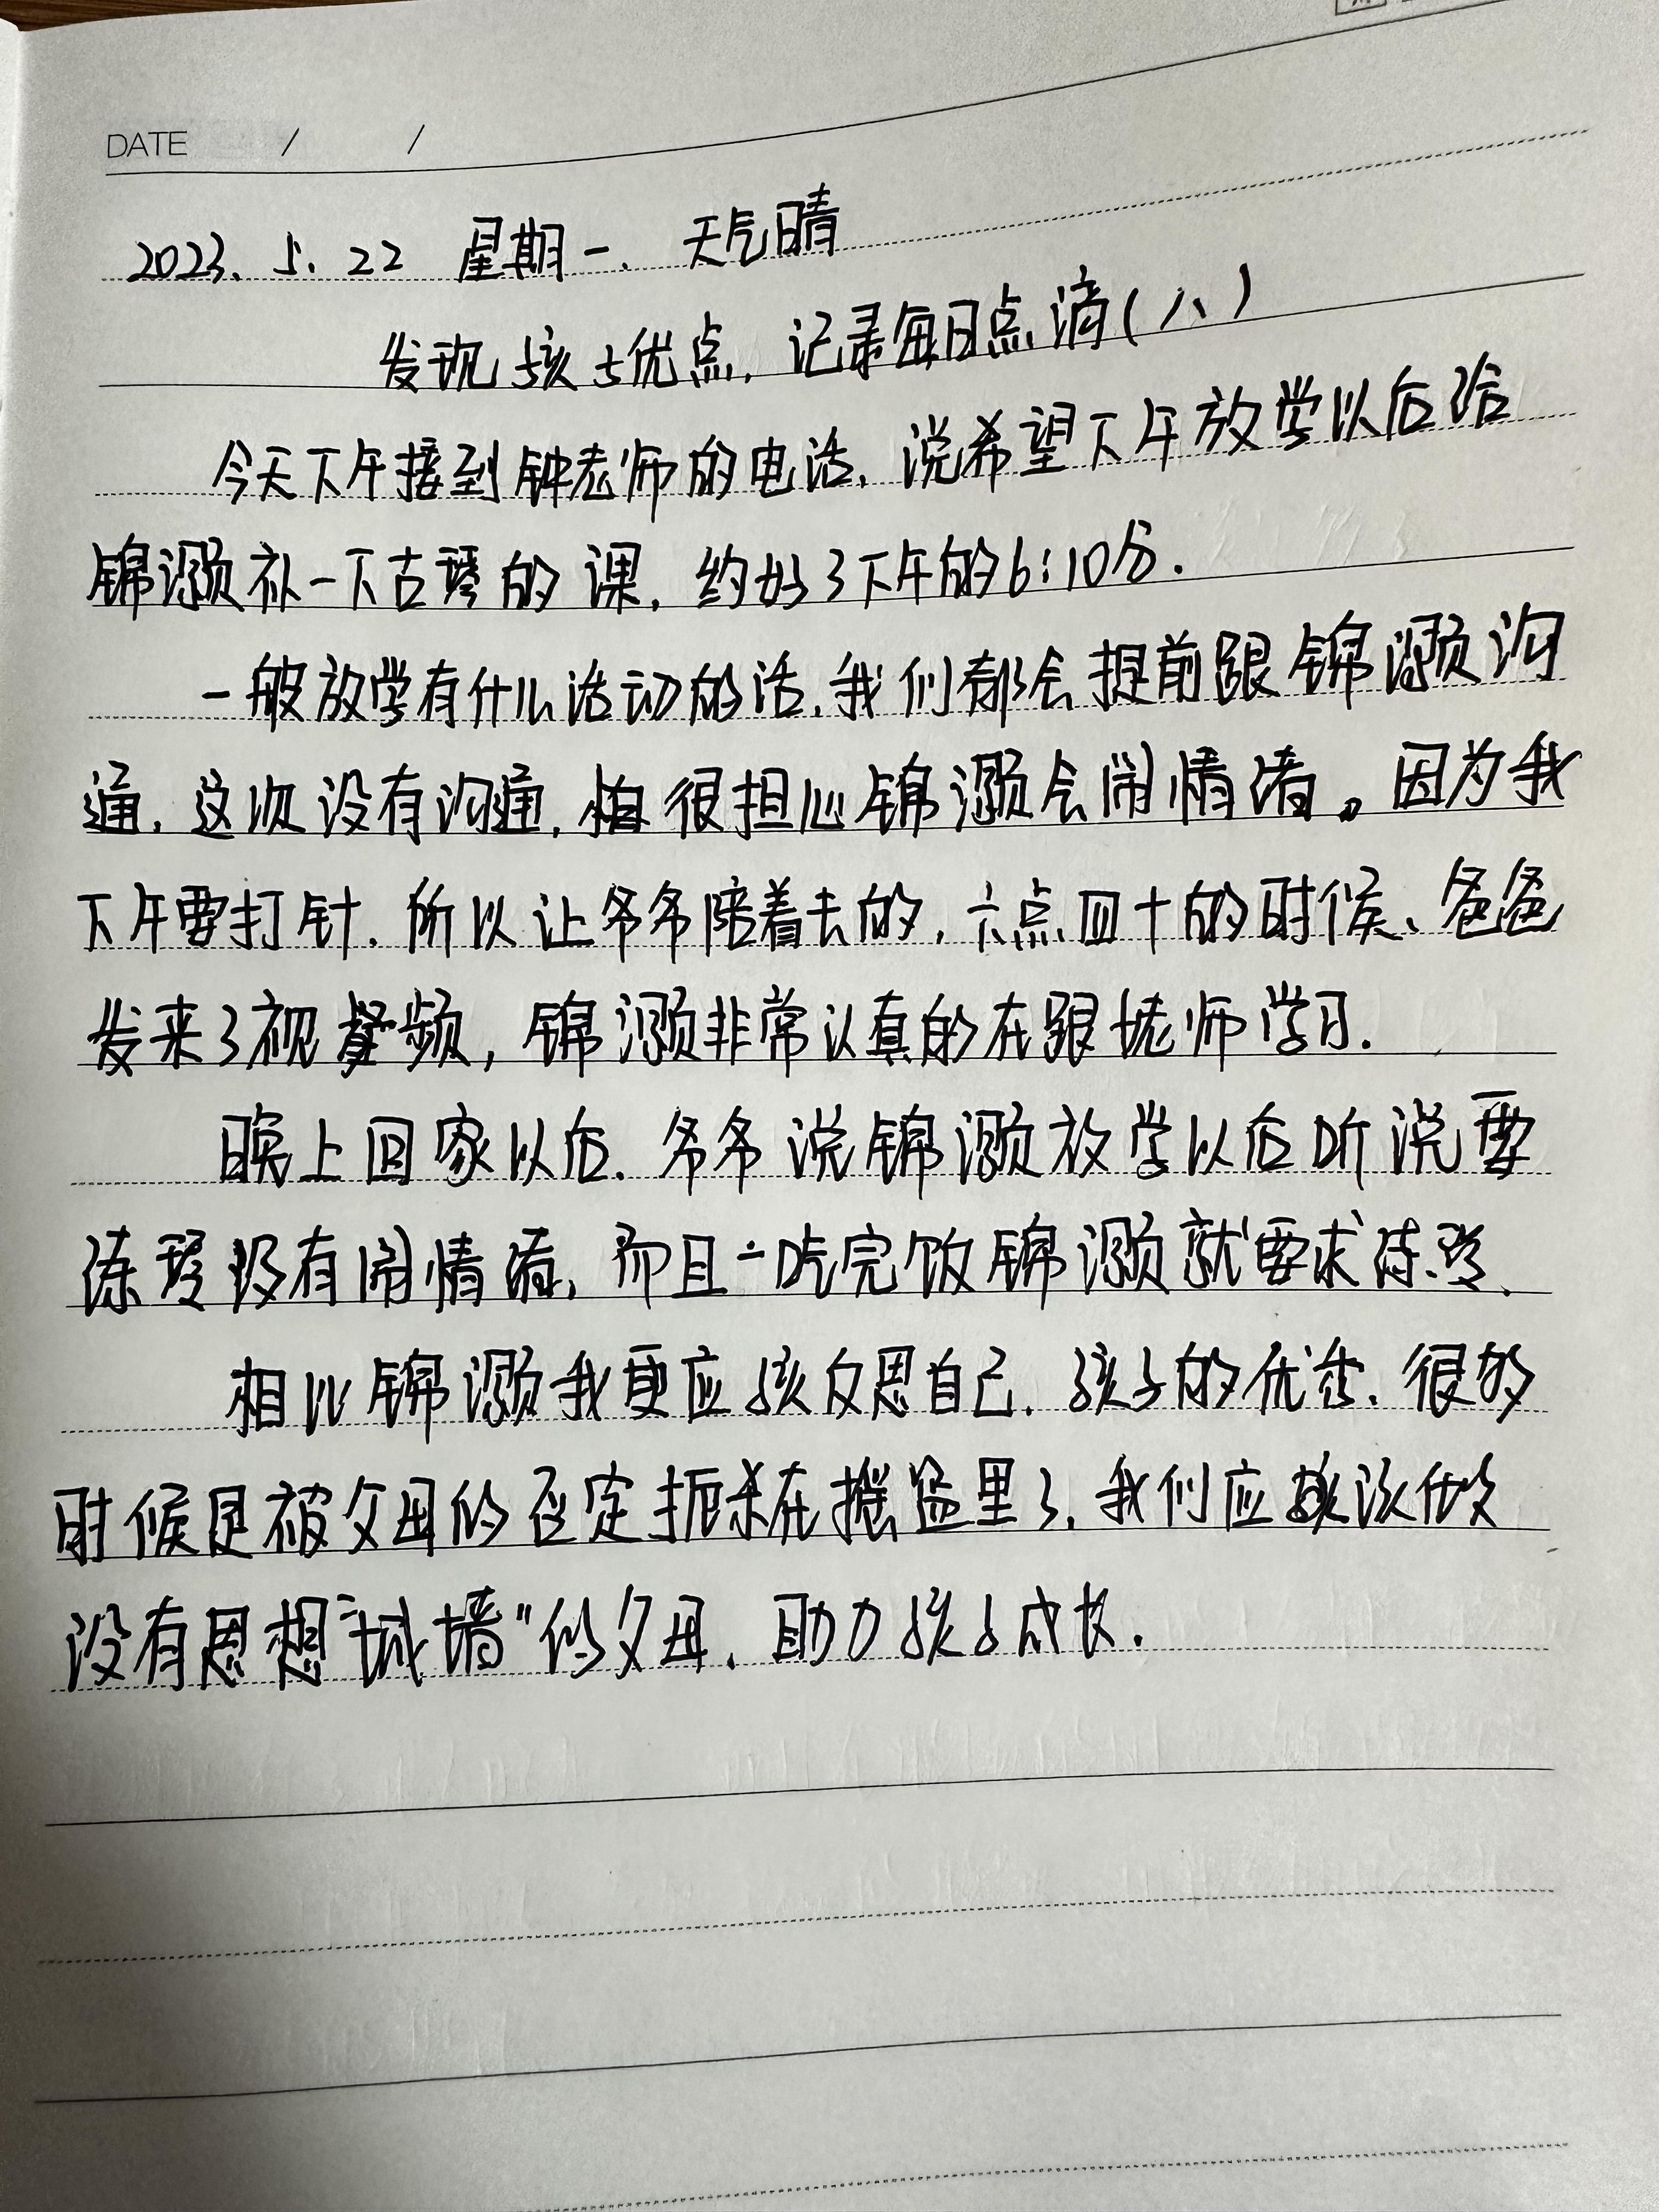 DATE / /
2023. 5. 22 星期一. 天气晴
发现孩子优点, 记录每日点滴(八)
今天下午接到钟老师的电话, 说希望下午放学以后给
锦灏补一下古琴的课, 约好了下午的6:10分.
一般放学有什么活动的话, 我们都会提前跟锦灏沟
通, 这次没有沟通, 很担心锦灏会闹情绪。因为我
下午要打针, 所以让爷爷陪着去的, 六点四十的时候、爸爸
发来了视频, 锦灏非常认真的在跟老师学习.
晚上回家以后, 爷爷说锦灏放学以后听说要
练琴没有闹情绪, 而且一吃完饭锦灏就要求练琴.
相比锦灏我更应该反思自己, 孩子的优点, 很多
时候是被父母的否定扼杀在摇篮里了, 我们应该做
没有思想"城墙"的父母, 助力孩子成长.